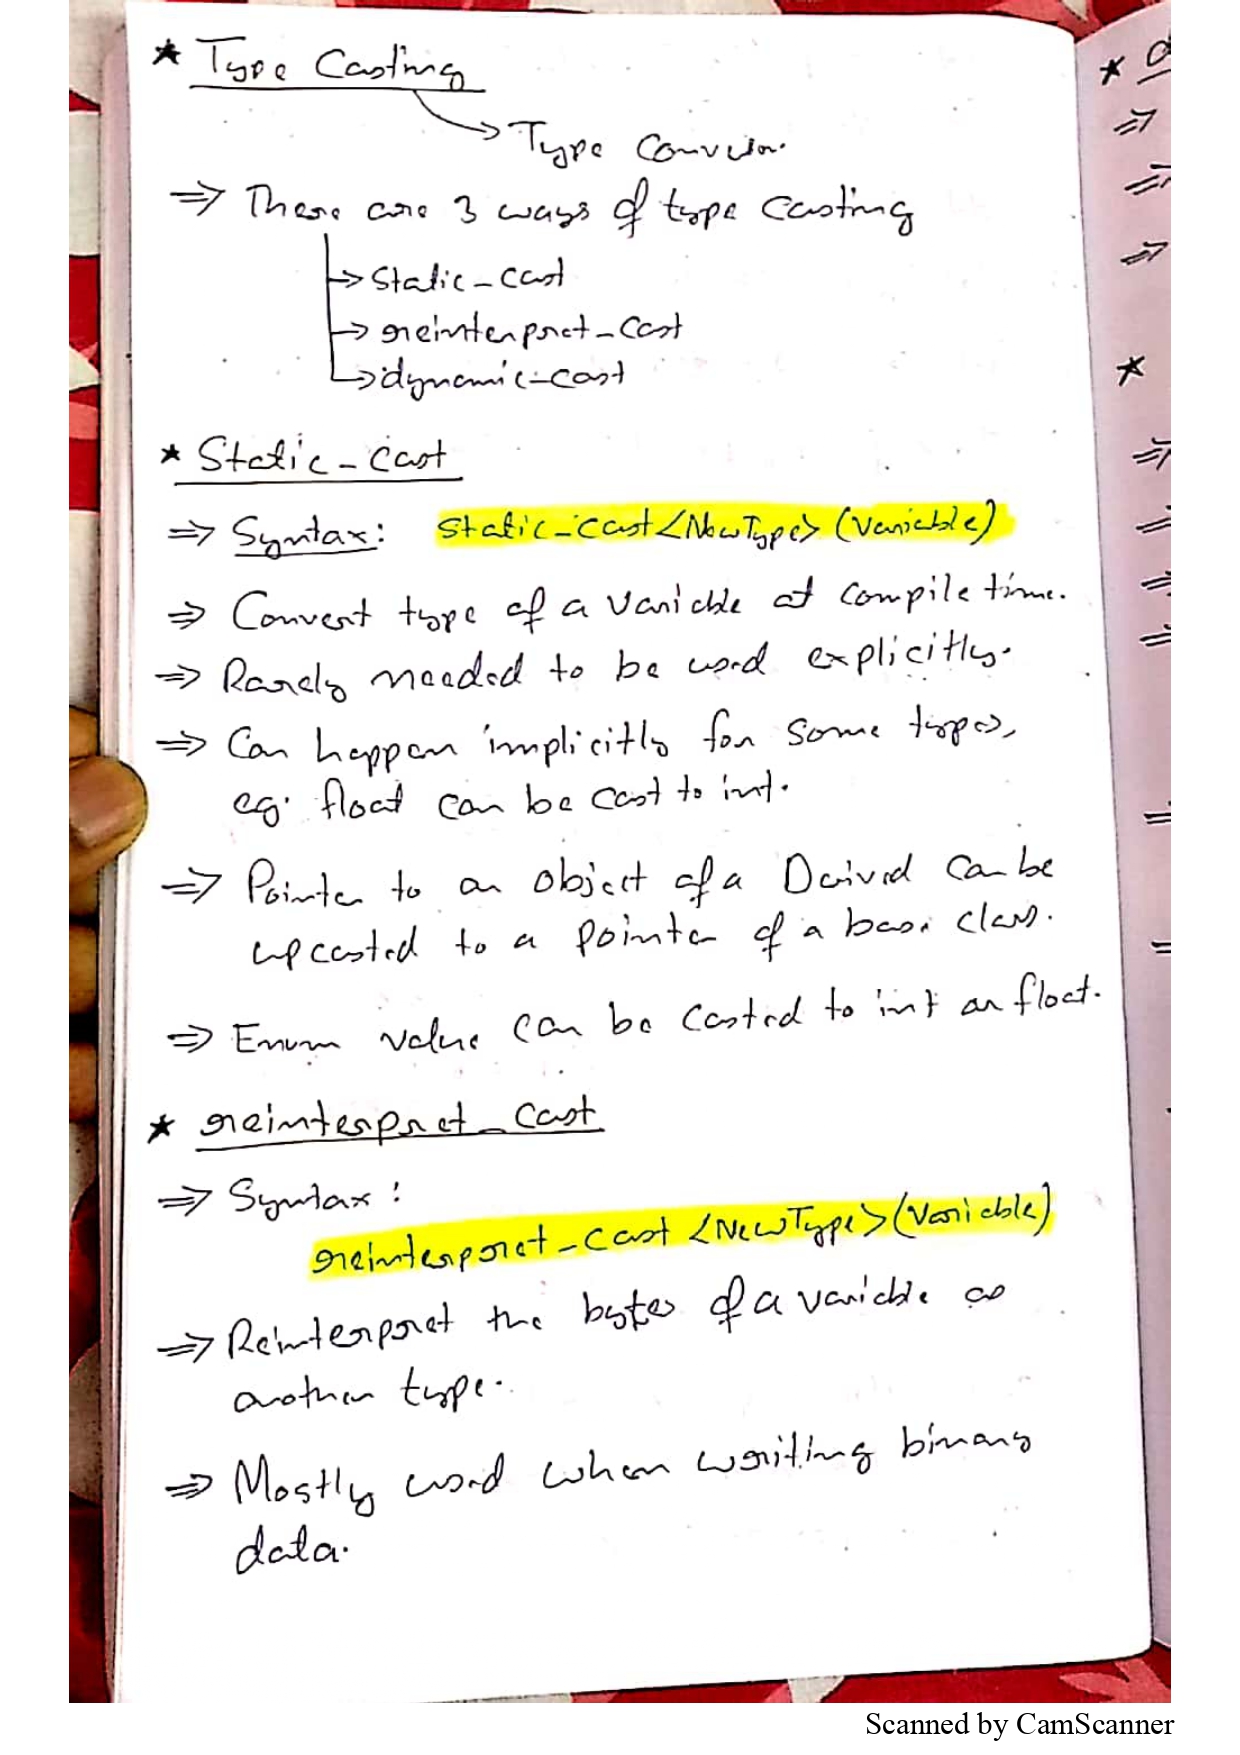 ★ Type Casting
→ Type Conversion.
⇒ There are 3 ways of type casting
→ static_cast
→ reinterpret_cast
→ dynamic_cast
★ Static_cast
⇒ Syntax: static_cast<NewType>(variable)
⇒ Convert type of a variable at compile time.
⇒ Rarely needed to be used explicitly.
⇒ Can happen implicitly for some types,
eg. float can be cast to int.
⇒ Pointer to an object of a Derived can be
upcasted to a pointer of a base class.
⇒ Enum value can be casted to int or float.
★ reinterpret_cast
⇒ Syntax:
reinterpret_cast <NewType>(variable)
⇒ Reinterpret the bytes of a variable as
another type.
⇒ Mostly used when writing binary
data.
★
⇒
⇒
⇒
★
⇒
⇒
⇒
⇒
Scanned by CamScanner